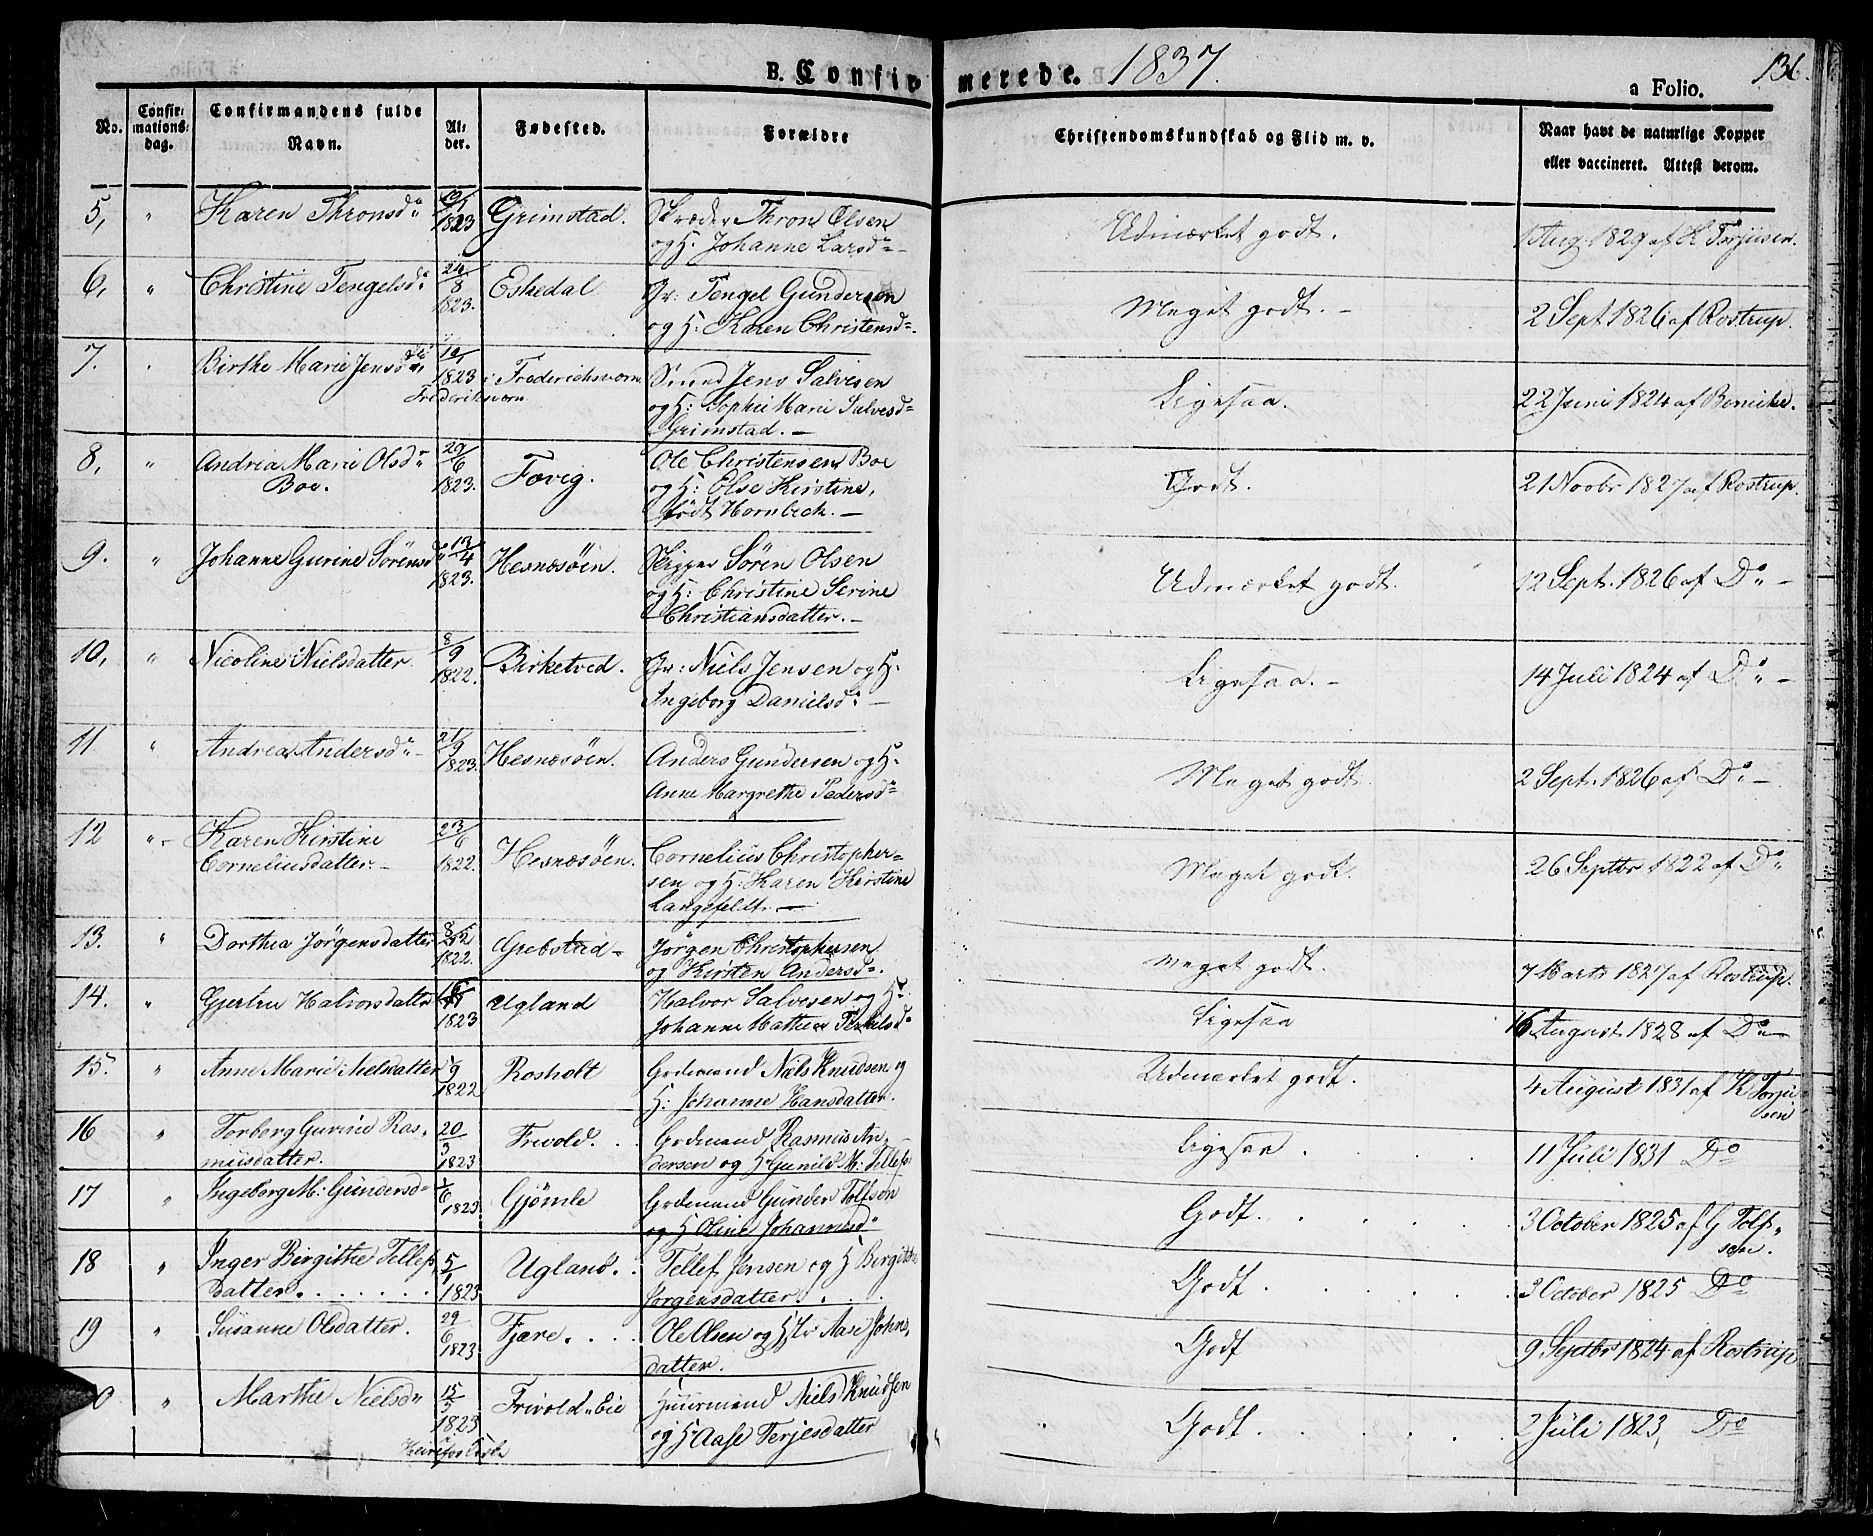 B. Confirmerede. 1837. 136.
a Folio.
No. Confirmationsdag. Confirmandens fulde Navn. Alder. Fødested. Forældre Christendomskundskab og Flid m. v. Naar havt de naturlige Kopper eller vaccineret. Attest derom.
5, " Karen Thronsd: 1823 Grimstad. Skræder Thron Olsen Udmærket godt. 1 Aug: 1829 af K Torjusen.
og H. Johanne Larsd: –
6, " Christine Tengelsd: 24/8 1823. Eskedal Gr: Tengel Gundersen Meget godt. – 2 Sept 1826 af Rostrup.
og H: Karen Christensd:
7. " Birthe Marie Jensd: 1823 i Frederichsværn Smed Jens Salvesen Ligesaa. 22 Juni 1824 af
Frederiksværn og H: Sophie Marie Salvesd:
Grimstad. –
8, " Andrea Marie Olsd: 29/6 1823. Fævig. Ole Christensen Boe Godt. 21 Novbr 1827 af Rostrup.
Boe. og H: Else Kirstine,
født Hornbech. –
9. " Johanne Gurine Sörensd: 13/4 1823. Hesnæsöen. Skipper Sören Olsen Udmærket godt. 12 Sept. 1826 af Do –
og H: Christine Serine
Christiansdatter. –
10, " Nicoline Nielsdatter 8/9 1822. Birketved. Gr: Niels Jensen og H. Ligesaa. – 14 Juli 1824 af Do –
Ingeborg Danielsd: –
11 " Andrea Andersd: – 21/9 1823. Hesnæsöen. Anders Gundersen og H. Meget godt. 2 Sept. 1826 af Do –
Anne Margrethe Pedersd:
12 " Karen Kirstine 23/6 1822. Hesnæsöen. Cornelius Christopher- Meget godt. 26 Septbr 1822 af Do
Corneliusdatter. – sen og H: Karen Kirstine
Langefeldt. –
13. " Dorthea Jörgensdatter 1822. Grebstad – Jörgen Christophersen Meget godt. 7 Marts 1827 af Rostrup.
og Kirsten Andersd:
14. " Gjertru Halvorsdatter 1823 Ugland Halvor Salvesen og H: Ligesaa 16 August 1828 af Do –
Johanne Mathea Terkelsd:
15. " Anne Marie Nielsdatter 1/9 1822 Rosholt Godmand Niels Knudsen og Udmærket godt. 4 August 1831 af K Torju
H: Johanne Hansdatter. sen
16 " Torborg Gurine Ras, 20/3 1823 Frivold. Godmand Rasmus An, Ligesaa 11 Juli 1831 Do
musdatter. dersen og H Gunild M: Tellefs
17 " Ingeborg M: Gundersd: 1/6 1823. Gjömle Godmand Gunder Tolfsen Godt. 3 October 1825 af G Tolf-
og H Oline Johannesd: sen.
18 " Inger Birgithe Tellefs, 5/1 1823 Ugland. Tellef Jensen og H Birgitte Godt. 3 October 1825 Do
datter. Jörgensdatter.
19 " Susanne Olsdatter. 29/6 1823 Fjære. Ole Olsen og H Aase Johns, Godt 9 Septbr 1824 af Rostrup
datter.
0 " Marthe Nielsd: 15/5 1823 Frivold Eie Huusmand Niels Knudsen Godt. 2 Juli 1823, Do
og H Aase Terjesdatter